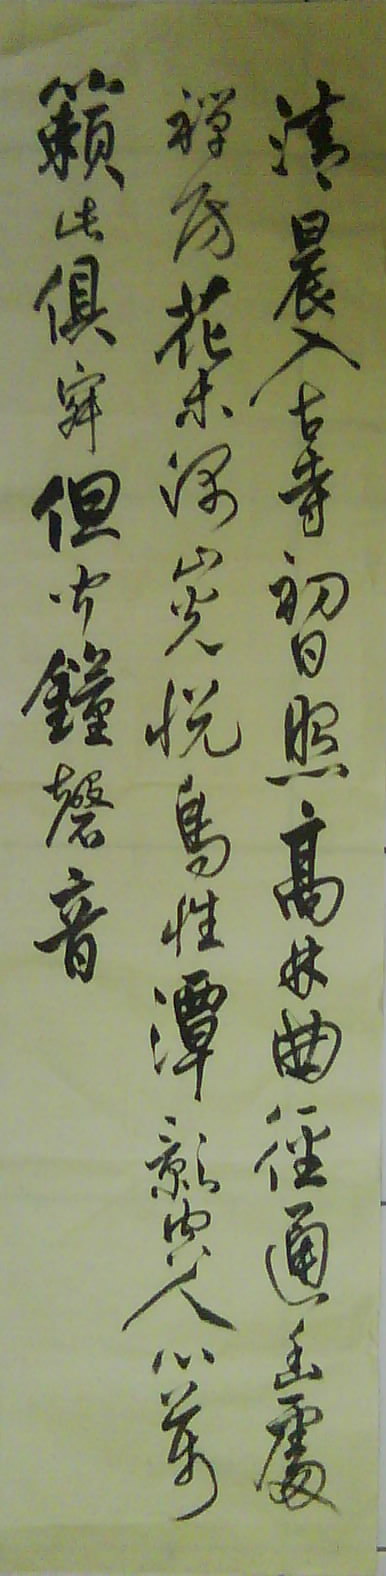 清晨入古寺初日照高林曲徑通幽處
禪房花木深山光悅鳥性潭影空人心萬
籟此俱寂但聞鐘磬音